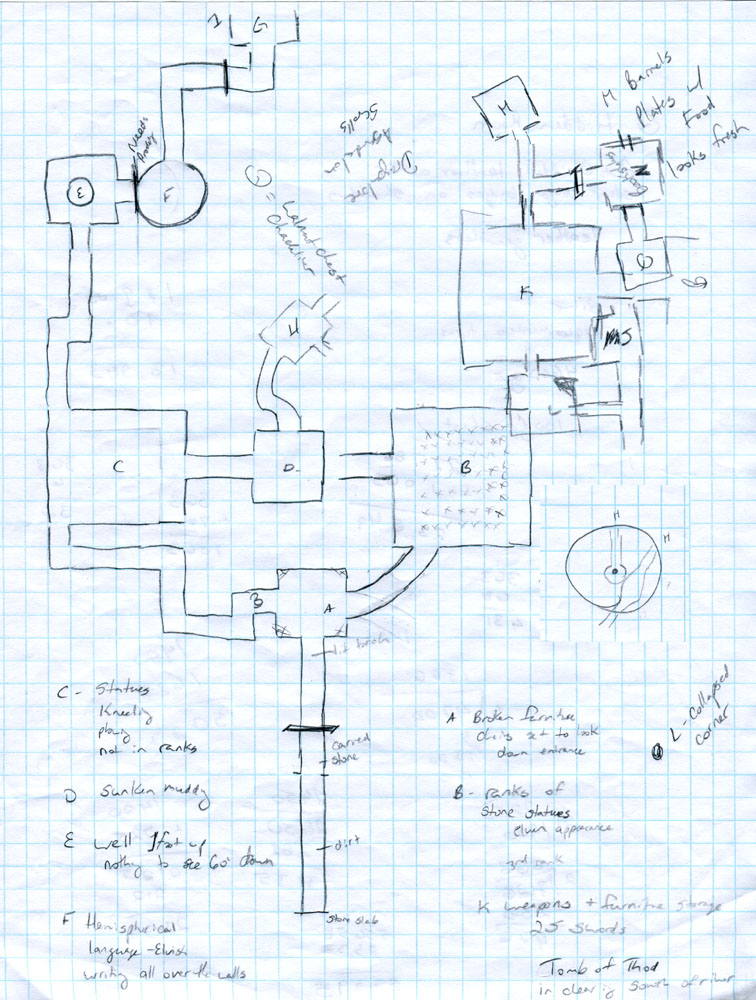 I G
Needs
H
M Barrels
Plates w/
Food
looks fresh
N
E
F
Scrolls
Drop
lore
J
= Walnut chest
Chandelier
K
H
L
C
D
B
A
lit torch
carved
stone
dirt
stone slab
H
H
C - Statues
Kneeling
not in ranks
D Sunken muddy
E well 1 foot up
nothing to see 60' down
F Hemispherical
language - Elvish
writing all over the walls
A Broken furniture
set to look
down entrance
B - ranks of
Stone statues
elven appearance
3rd rank
K weapons + furniture storage
25 swords
L - Collapsed
corner
Tomb of Thod
in clearing South of river